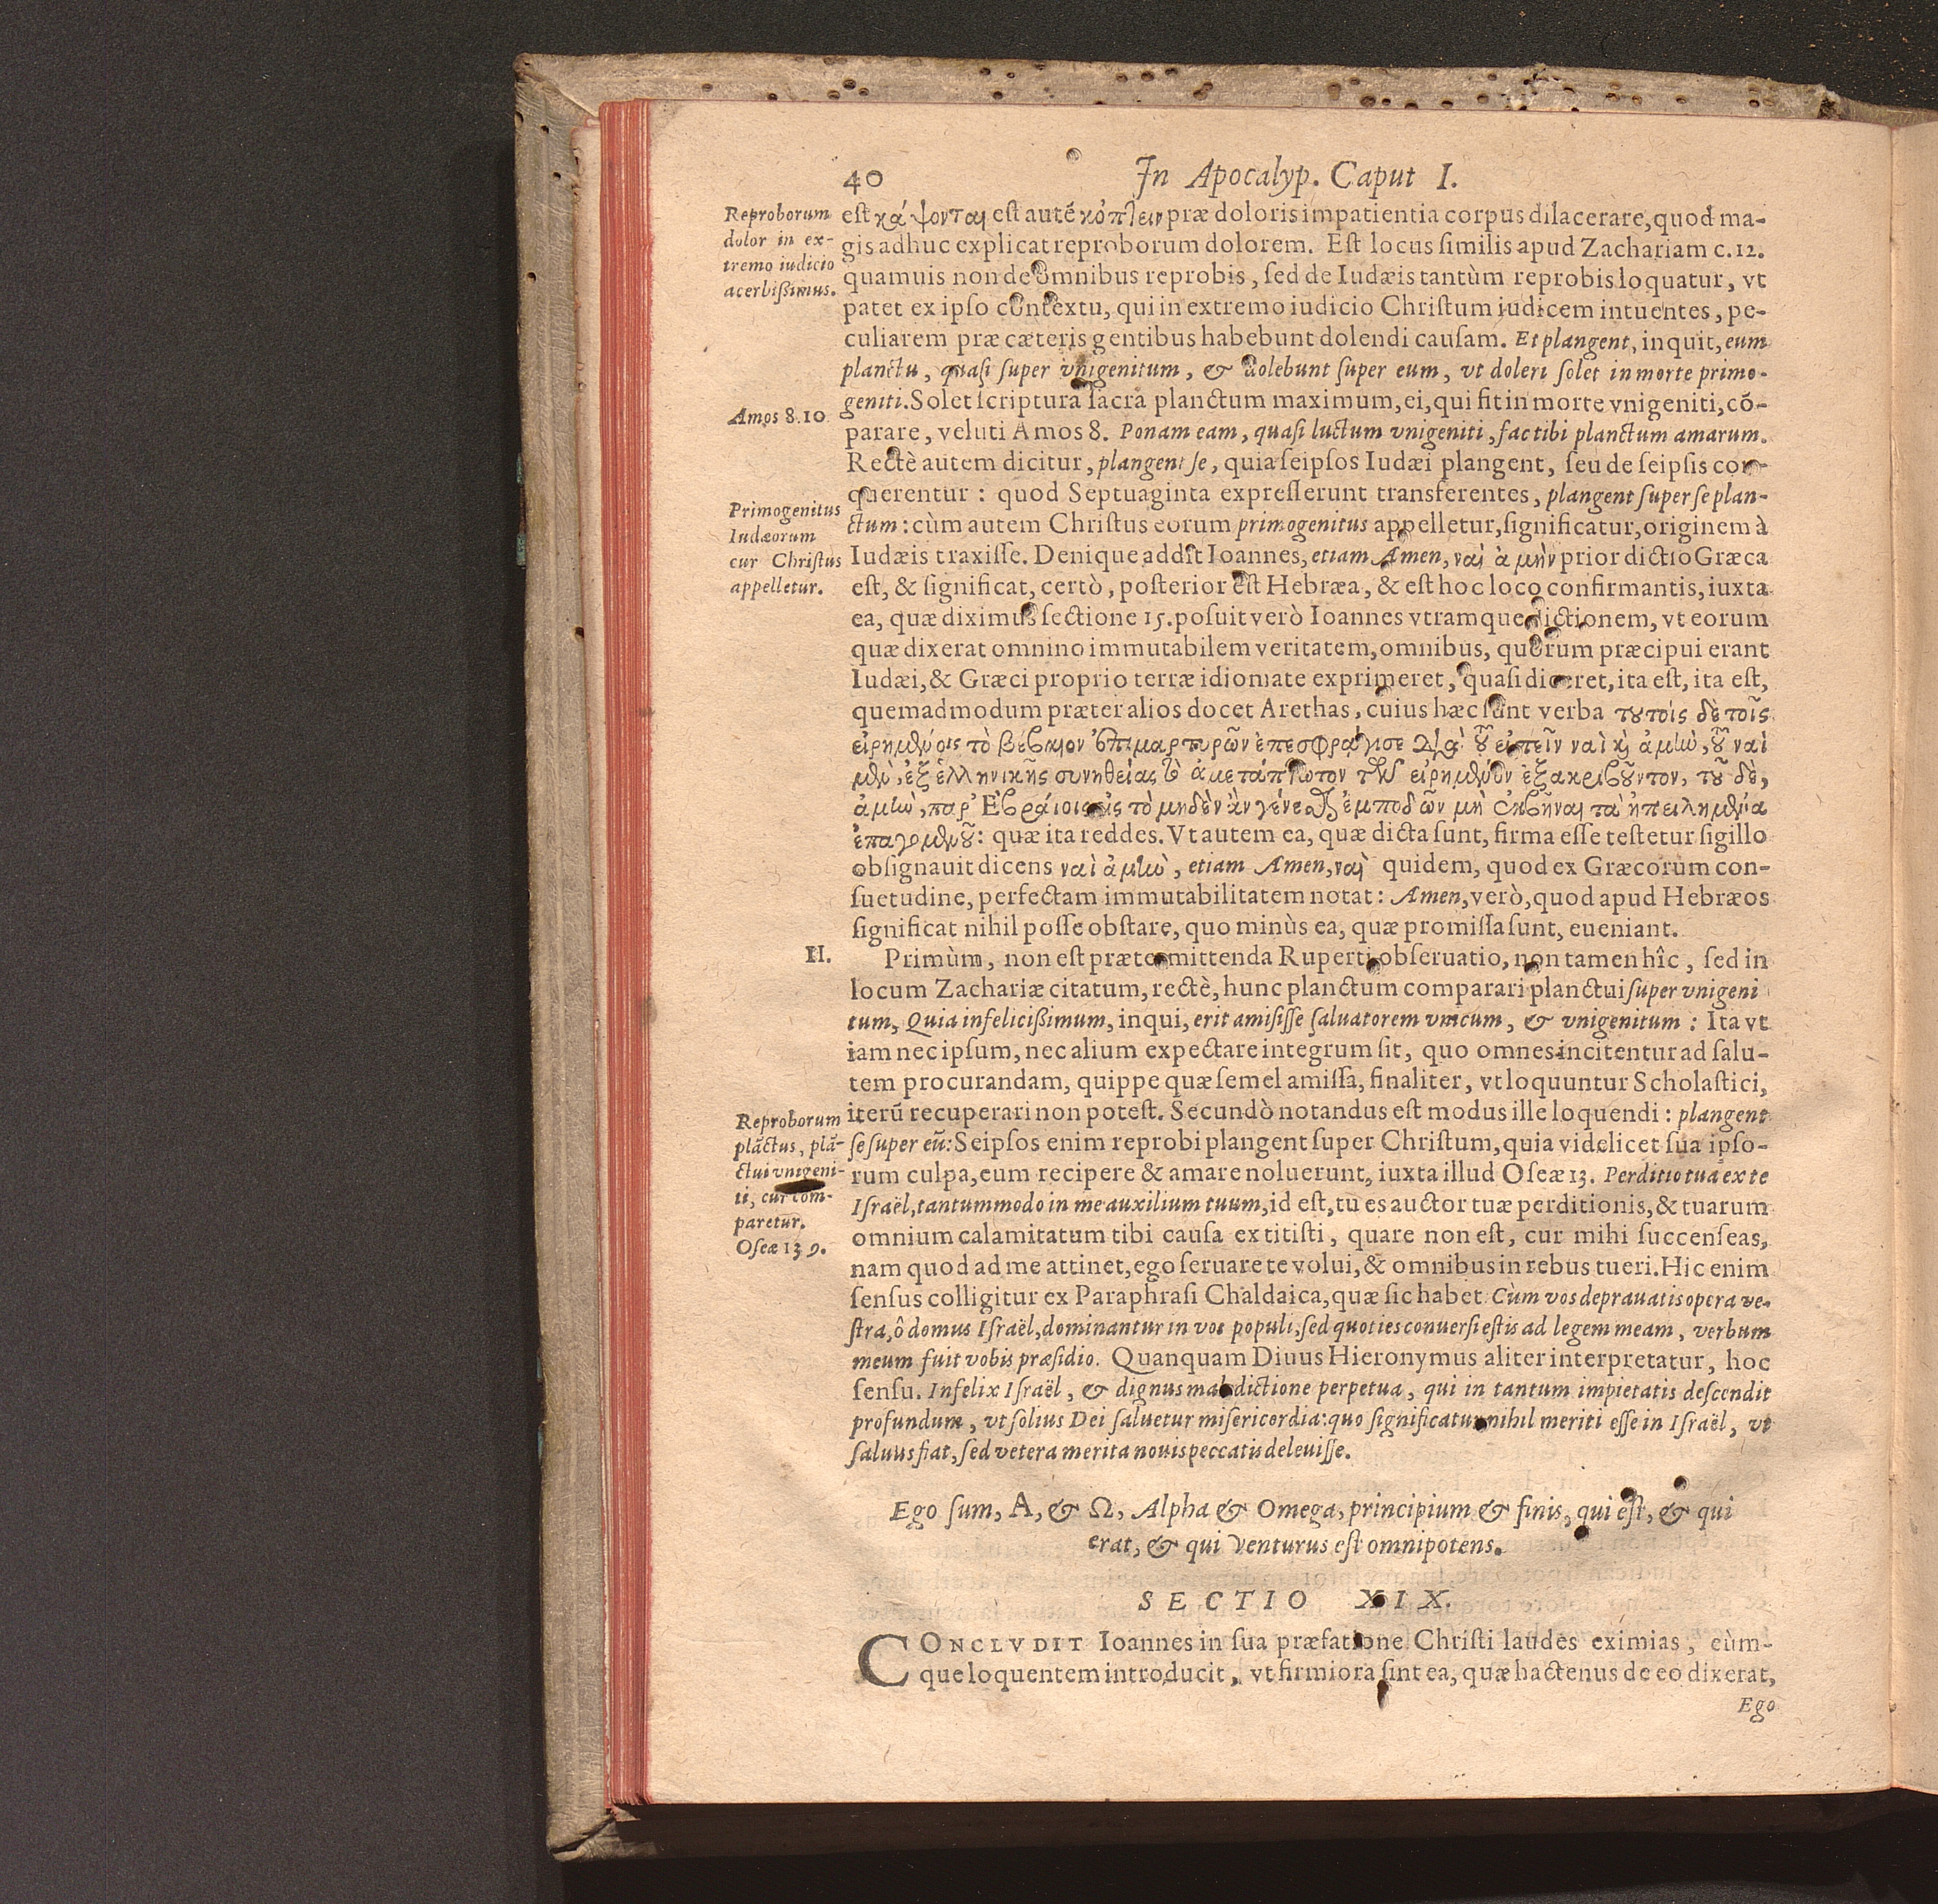 40 In Apocalyp. Caput I.
Reproborum
dolor in ex-
tremo iudicio
acerbißimus.
est κάψονται est autē κόπτειν præ doloris impatientia corpus dilacerare, quod ma-
gis adhuc explicat reproborum dolorem. Est locus ſimilis apud Zachariam c. 12.
quamuis non de omnibus reprobis, ſed de Iudæis tantùm reprobis loquatur, vt
patet ex ipſo contextu, qui in extremo iudicio Chriſtum iudicem intuentes, pe-
culiarem præ cæteris gentibus habebunt dolendi cauſam. Et plangent, inquit, eum
planctu, quaſi ſuper vnigenitum, & dolebunt ſuper eum, vt doleri ſolet in morte primo-
geniti. Solet ſcriptura ſacra planctum maximum, ei, qui fit in morte vnigeniti, cō-
Amos 8.10.
parare, veluti Amos 8. Ponam eam, quaſi luctum vnigeniti, fac tibi planctum amarum.
Rectè autem dicitur, plangent ſe, quia ſeipſos Iudæi plangent, ſeu de ſeipſis con-
querentur: quod Septuaginta expreſſerunt transferentes, plangent ſuper ſe plan-
Primogenitus
Iudæorum
cur Chriſtus
appelletur.
ctum: cùm autem Chriſtus eorum primogenitus appelletur, ſignificatur, originem à
Iudæis traxiſſe. Denique addit Ioannes, etiam Amen, ναὶ ἀμὴν prior dictio Græca
est, & ſignificat, certò, poſterior eſt Hebræa, & eſt hoc loco confirmantis, iuxta
ea, quæ diximus ſectione 15. poſuit verò Ioannes vtramque dictionem, vt eorum
quæ dixerat omnino immutabilem veritatem, omnibus, quorum præcipui erant
Iudæi, & Græci proprio terræ idiomate exprimeret, quaſi diceret, ita eſt, ita eſt,
quemadmodum præter alios docet Arethas, cuius hæc ſunt verba τουτοίς δὲ τοῖς
εἰρημένοις τὸ βέβαιον ἐπιμαρτυρῶν ἐπεσφράγισε διὰ τοῦ εἰπεῖν ναὶ καὶ ἀμὴν, τοῦ ναὶ
μὲν, ἐξ ἑλληνικῆς συνηθείας τὸ ἀμετάπτωτον τῶν εἰρημένων ἐξακριβοῦντον, τοῦ δὲ,
ἀμὴν, παρ' Ἑβραίοις εἰς τὸ μηδὲν ἂν γένεσθαι ἐμποδῶν μὴ ἐκβῆναι τὰ ἠπειλημένα
ἐπαγομένου: quæ ita reddes. Vt autem ea, quæ dicta ſunt, firma eſſe teſtetur ſigillo
obſignauit dicens ναὶ ἀμὴν, etiam Amen, ναὶ quidem, quod ex Græcorum con-
ſuetudine, perfectam immutabilitatem notat: Amen, verò, quod apud Hebræos
ſignificat nihil poſſe obſtare, quo minùs ea, quæ promiſſa ſunt, eueniant.
II.
Primùm, non eſt prætermittenda Ruperti obſeruatio, non tamen hîc, ſed in
locum Zachariæ citatum, rectè, hunc planctum comparari planctui ſuper vnigeni
tum, Quia infelicißimum, inqui, erit amiſiſſe ſaluatorem vnicum, & vnigenitum: Ita vt
iam nec ipſum, nec alium expectare integrum ſit, quo omnes incitentur ad ſalu-
tem procurandam, quippe quæ ſemel amiſſa, finaliter, vt loquuntur Scholaſtici,
Reproborum
plāctus, plā-
ctui vnigeni-
ti, cur com-
paretur.
Oſeæ 13 9.
iterū recuperari non poteſt. Secundò notandus eſt modus ille loquendi: plangent
ſe ſuper eū: Seipſos enim reprobi plangent ſuper Chriſtum, quia videlicet ſua ipſo-
rum culpa, eum recipere & amare noluerunt, iuxta illud Oſeæ 13. Perditio tua ex te
Iſraël, tantummodo in me auxilium tuum, id eſt, tu es auctor tuæ perditionis, & tuarum
omnium calamitatum tibi cauſa extitiſti, quare non eſt, cur mihi ſuccenſeas,
nam quod ad me attinet, ego ſeruare te volui, & omnibus in rebus tueri. Hic enim
ſenſus colligitur ex Paraphraſi Chaldaica, quæ ſic habet. Cùm vos deprauatis opera ve-
ſtra, ô domus Iſraël, dominantur in vos populi, ſed quoties conuerſi eſtis ad legem meam, verbum
meum fuit vobis præſidio. Quanquam Diuus Hieronymus aliter interpretatur, hoc
ſenſu. Infelix Iſraël, & dignus maledictione perpetua, qui in tantum impietatis deſcendit
profundum, vt ſolius Dei ſaluetur miſericordia: quo ſignificatur nihil meriti eſſe in Iſraël, vt
ſaluus fiat, ſed vetera merita nouis peccatis deleuiſſe.
Ego ſum, A, & Ω, Alpha & Omega, principium & finis, qui eſt, & qui
erat, & qui venturus eſt omnipotens.
SECTIO XIX.
CONCLVDIT Ioannes in ſua præfatione Chriſti laudes eximias, eùm-
que loquentem introducit, vt firmiora ſint ea, quæ hactenus de eo dixerat,
Ego